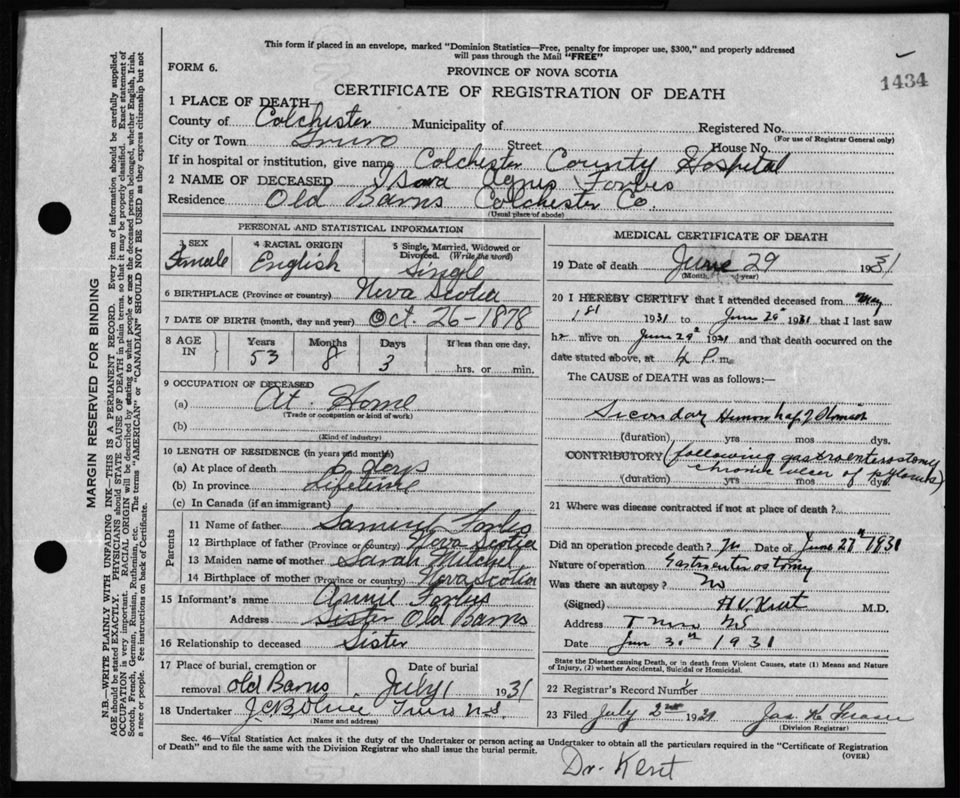 This form if placed in an envelope, marked "Dominion Statistics—Free, penalty for improper use, $300," and properly addressed
will pass through the Mail "FREE"
FORM 6.
PROVINCE OF NOVA SCOTIA
1434
CERTIFICATE OF REGISTRATION OF DEATH
1 PLACE OF DEATH
County of Colchester Municipality of Registered No.
(For use of Registrar General only)
City or Town Truro Street House No.
If in hospital or institution, give name Colchester County Hospital
2 NAME OF DECEASED Agnes Forbes
Residence Old Barns Colchester Co.
(Usual place of abode)
PERSONAL AND STATISTICAL INFORMATION
3 SEX Female
4 RACIAL ORIGIN English
5 Single, Married, Widowed or Divorced. (Write the word) Single
6 BIRTHPLACE (Province or country) Nova Scotia
7 DATE OF BIRTH (month, day and year) Oct. 26-1878
8 AGE IN Years 53 Months 8 Days 3 If less than one day, hrs. or min.
9 OCCUPATION OF DECEASED
(a) At Home
(Trade or occupation or kind of work)
(b)
(Kind of industry)
10 LENGTH OF RESIDENCE (in years and months)
(a) At place of death Days
(b) In province Lifetime
(c) In Canada (if an immigrant)
Parents
11 Name of father Samuel Forbes
12 Birthplace of father (Province or country) Nova Scotia
13 Maiden name of mother Sarah
14 Birthplace of mother (Province or country) Nova Scotia
15 Informant's name Annie Forbes
Address Sister Old Barns
16 Relationship to deceased Sister
17 Place of burial, cremation or removal Old Barns Date of burial July 1 1931
18 Undertaker Truro N.S.
(Name and address)
MEDICAL CERTIFICATE OF DEATH
19 Date of death June 29 1931
(Month, year)
20 I HEREBY CERTIFY that I attended deceased from May
1st 1931 to June 29 1931 that I last saw
h alive on June 29 1931 and that death occurred on the
date stated above, at 4 P.m.
The CAUSE of DEATH was as follows:—
Secondary
(duration) yrs mos dys.
CONTRIBUTORY (following gastroenterostomy
chronic ulcer of pylorus)
(duration) yrs mos dys.
21 Where was disease contracted if not at place of death?
Did an operation precede death? Date of June 1931
Nature of operation Gastroenterostomy
Was there an autopsy? No
(Signed) H.V. Kent M.D.
Address Truro NS
Date Jun 30th 1931
State the Disease causing Death, or in death from Violent Causes, state (1) Means and Nature
of Injury, (2) whether Accidental, Suicidal or Homicidal.
22 Registrar's Record Number 1
23 Filed July 2nd 1931
(Division Registrar)
Sec. 46—Vital Statistics Act makes it the duty of the Undertaker or person acting as Undertaker to obtain all the particulars required in the "Certificate of Registration
of Death" and to file the same with the Division Registrar who shall issue the burial permit.
(OVER)
Dr. Kent
MARGIN RESERVED FOR BINDING
N.B.—WRITE PLAINLY WITH UNFADING INK—THIS IS A PERMANENT RECORD. Every item of information should be carefully supplied.
AGE should be stated EXACTLY. PHYSICIANS should STATE CAUSE OF DEATH in plain terms, so that it may be properly classified. Exact statement of
OCCUPATION is very important. RACIAL ORIGIN will be described by stating to what people or race the deceased person belonged, whether English, Irish,
Scotch, French, German, Russian, Ruthenian, etc. The terms "AMERICAN" or "CANADIAN" SHOULD NOT BE USED as they express citizenship but not
a race or people. Fee instructions on back of Certificate.